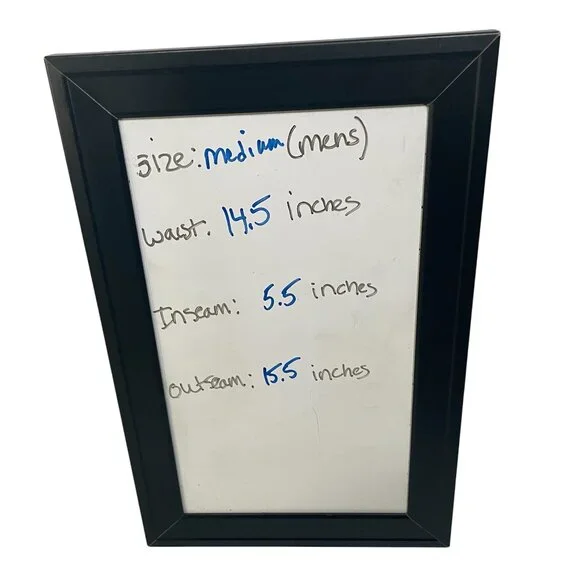 Size: medium (mens)
Waist. 14.5 inches
Inseam: 5.5 inches
outseam: 15.5 inches